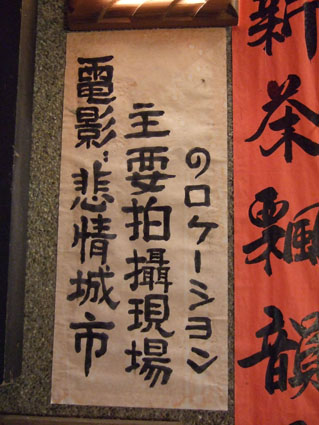 電影:悲情城市
主要拍攝現場
のロケーション
新茶飄韻